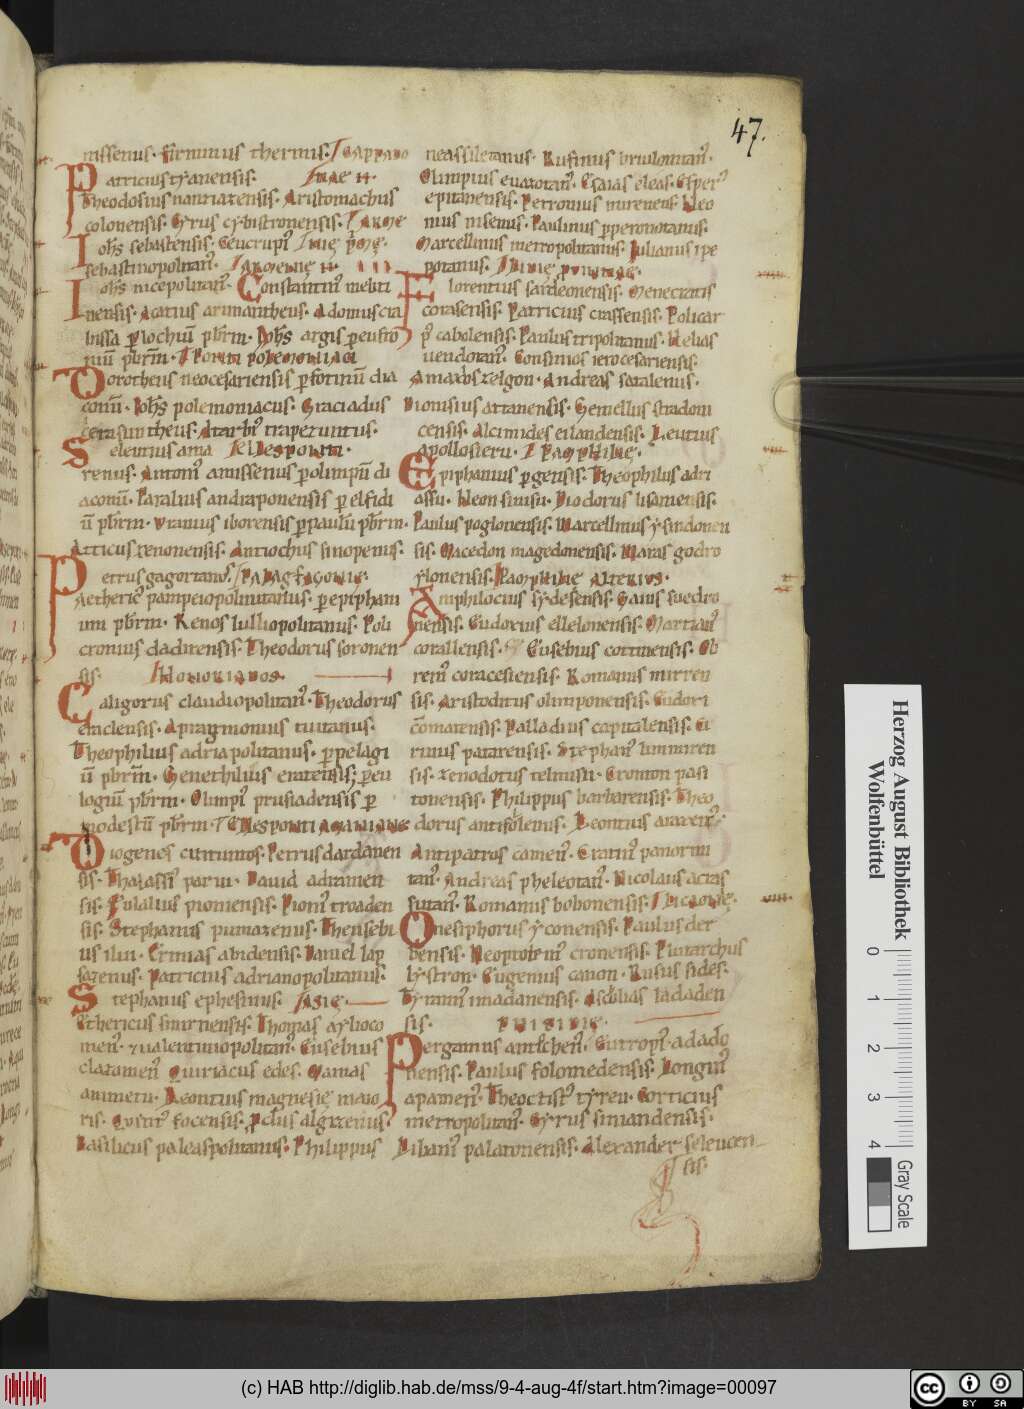 47.
nissenus. firminus thermis. / CAPPADO
Patricius tyanensis. / INAE II.
Theodosius nanriatensis. Aristomachus
colonensis. Cyrus cybistronensis. / ARME
Iohs sebastensis. Geucrupi / NIE PME.
sebastinopolitan. / ARMENIE II.
Iohs nicepolitan. Constantin meliti
nensis. Acatius arimantheus. Adomuscia
bissa p lochiu pbrm. Iohs argis p eufro
niu pbrm. / PONTI POLEMONIACI
Dorotheus neocesariensis p fotinu dia
conu. Iohs polemoniacus. Graciadus
cerasuntheus. Atarbi trapezuntus.
Seleucius ama / ELLESPONTI.
renus. Antoni amissenus p olimpiu di
aconu. Paralius andraponensis p elfidi
u pbrm. Uranius iborensis p paulu pbrm.
Atticus zenonensis. Antiochus sinopenus.
Petrus gagortanos. / PAPAGFAGONIE.
Aetheric pampeiopolitanus. p epiphani
um pbrm. Renos lulliopolitanus. Poli
cronius dadirensis. Theodorus soronen
sis. / HONORIADOS.
Caligorus claudiopolitan. Theodorus
eracliensis. Apragmonius tiuitanus.
Theophilius adriapolitanus. p pelagi
u pbrm. Genethilius eratensis. p eu
logiu pbrm. Olimpi prusiadensis p
modestu pbrm. / ELLESPONTI
Diogenes cutiumos. Petrus dardanen
sis. Thalassi parui. David adiamen
sis. Eulalius pionensis. Pioni troaden
sis. Stephanus pumazenus. Thensebi
us ilui. Ermias abidensis. Daniel lap
sazenus. Patricius adrianopolitanus.
Stephanus ephesinus. / ASIE.
Ethericus smirnensis. Thomas aylioco
men. et ualentiniopolitan. Eusebius
clazamen Quiriacus edes. Mamas
animetu. Leontius magnesie maio
ris. Quint focensis. Pclus algizenus.
Basilicus paleaspolitanus. Philippus
neassiletanus. Rufinus briulonitan.
Olimpius euazotan. Esaias eleas. Esper
epitanensis. Petronius nirenens. Neo
nius nisenus. Paulinus pperonotanus.
Marcellinus metropolitanus. Iulianus ipe
potanus. / LIDIE PROVINCIE.
Florentius sardeonensis. Menecratis
corasensis. Patricius crassensis. Policar
p cabolensis. Paulus tripolitanus. Helias
uendotan. Consimos ierocesariensis.
Amachs selgon. Andreas satalenus.
Dionisius attanensis. Gemellus stradoni
censis. Alcimides eilandensis. Leutius
apollosieru. / PAMPHILIE.
Epiphanius pgensis. Theophilus adri
assu. Neon siuisu. Diodorus lisoniensis.
Paulus poglonensis. Marcellinus ysindonen
sis. Macedon magedonensis. Maras godro
ylonensis. PAMPHILIE ALTERIUS.
Amphilocius sydesensis. Gaius suedro
nensis. Eudorius ellelonensis. Martian
corallensis. Eusebius cottinensis. Ob
rem coracesiensis. Romanus mirren
sis. Aristoditus olimponensis. Eudori
comatensis. Palladius capitalensis. Ci
rinus patarensis. Stephan limmiren
sis. zenodotus telmisu. Cromon pasi
tonensis. Philippus barbarensis. Theo
dorus antifolenus. Leontius araren.
Antipatros camen. Cratin panormi
tan. Andreas pheleotan. Nicolaus acras
sutan. Romanus bobonensis. / LICAONIE.
Onesiphorus yconensis. Paulus der
bensis. Neoptolem cronensis. Plutarchus
lystron. Eugenius canon. Rufus sides.
Tyrannus imadanensis. Ascolias ladaden
sis. PHISIDIE.
Pergamus antichen. Eutropi adado
nensis. Paulus folomedensis. Longin
apamen. Theoctist tyreu. Corticius
metropolitan. Cyrus siniandensis.
Libani palatonensis. Alexander seleucen
sis.
Herzog August Bibliothek
Wolfenbüttel
0 1 2 3 4
Gray Scale
(c) HAB http://diglib.hab.de/mss/9-4-aug-4f/start.htm?image=00097
cc BY SA